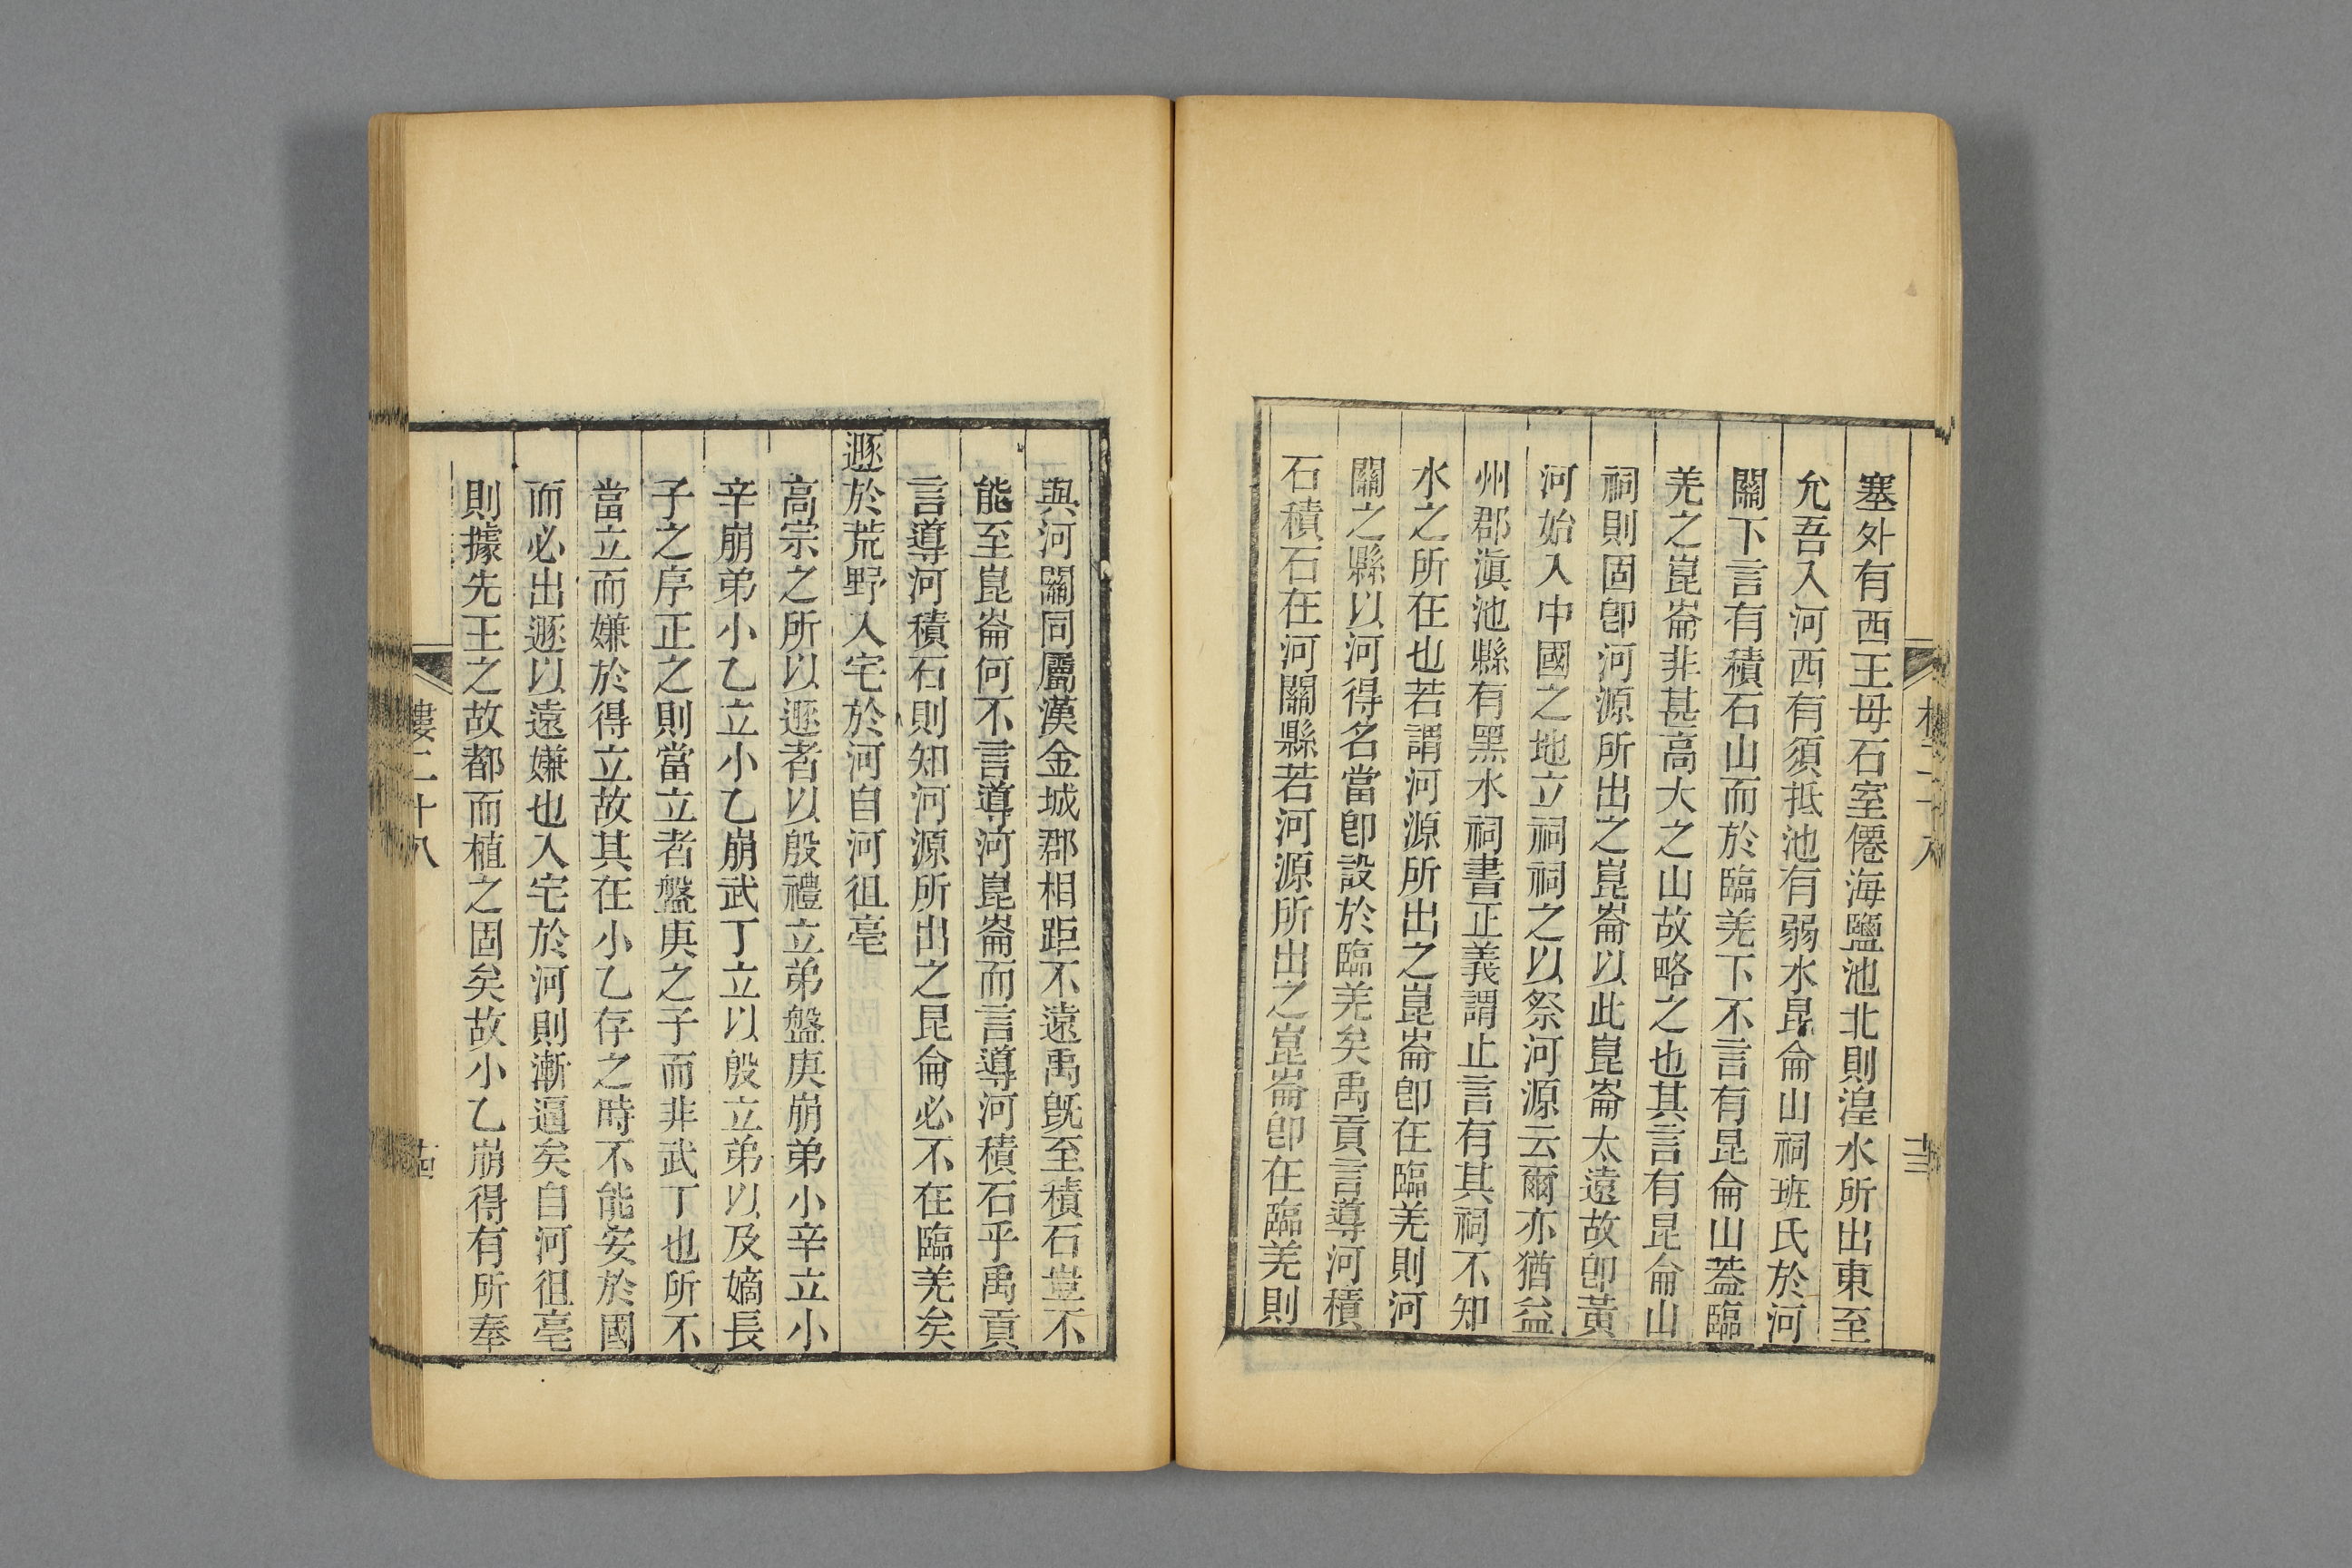 塞外有西王母石室僊海鹽池北則湟水所出東至
允吾入河西有須抵池有弱水昆侖山祠班氏於河
關下言有積石山而於臨羌下不言有昆侖山葢臨
羌之崑崙非甚高大之山故略之也其言有昆侖山
祠則固卽河源所出之崑崙以此崑崙太遠故卽黃
河始入中國之地立祠祠之以祭河源云爾亦猶益
州郡滇池縣有黑水祠書正義謂止言有其祠不知
水之所在也若謂河源所出之崑崙卽在臨羌則河
關之縣以河得名當卽設於臨羌矣禹貢言導河積
石積石在河關縣若河源所出之崑崙卽在臨羌則
與河關同屬漢金城郡相距不遠禹旣至積石豈不
能至崑崙何不言導河崑崙而言導河積石乎禹貢
言導河積石則知河源所出之昆侖必不在臨羌矣
遯於荒野入宅於河自河徂亳
高宗之所以遯者以殷禮立弟盤庚崩弟小辛立小
辛崩弟小乙立小乙崩武丁立以殷立弟以及嫡長
子之序正之則當立者盤庚之子而非武丁也所不
當立而嫌於得立故其在小乙存之時不能安於國
而必出遯以遠嫌也入宅於河則漸逼矣自河徂亳
則據先王之故都而植之固矣故小乙崩得有所奉
樓二十八